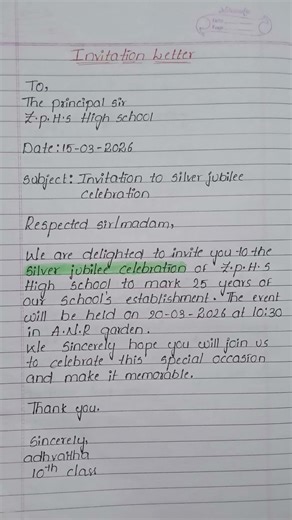 Invitation Letter
To,
The principal sir
Z.p.H.s High school
Date: 15-03-2026
subject: Invitation to silver jubilee
celebration
Respected sir/madam,
We are delighted to invite you to the
silver jubilee celebration of Z.p.H.s
High school to mark 25 years of
our school's establishment. The event
will be held on 20-03-2026 at 10:30
in A.N.R garden.
We sincerely hope you will join us
to celebrate this special occasion
and make it memorable.
Thank you.
Sincerely,
10th class